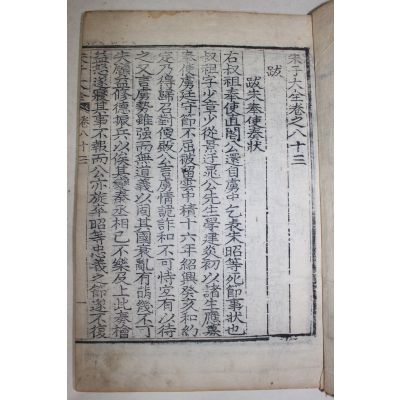 朱子大全卷之八十三
跋
跋朱奉使奏狀
右叔祖奉使直閣公還自虜中乞表朱昭等死節事狀也
叔祖字少章少從景迂晁公先生學建炎初以諸生應募
奉使虜廷守節不屈被留雲中積十六年紹興癸亥和約
定乃得歸召對便殿公言虜情詭詐和不可恃宜有以待
之又言虜勢雖强而無道義以固其國衰亂有萌幾不可
失願益修德振兵以俟其變秦丞相已不樂及上此奏檜
益怒遂寢其事不報而公亦旋卒昭等忠義之節遂不復
朱子大全 卷八十三